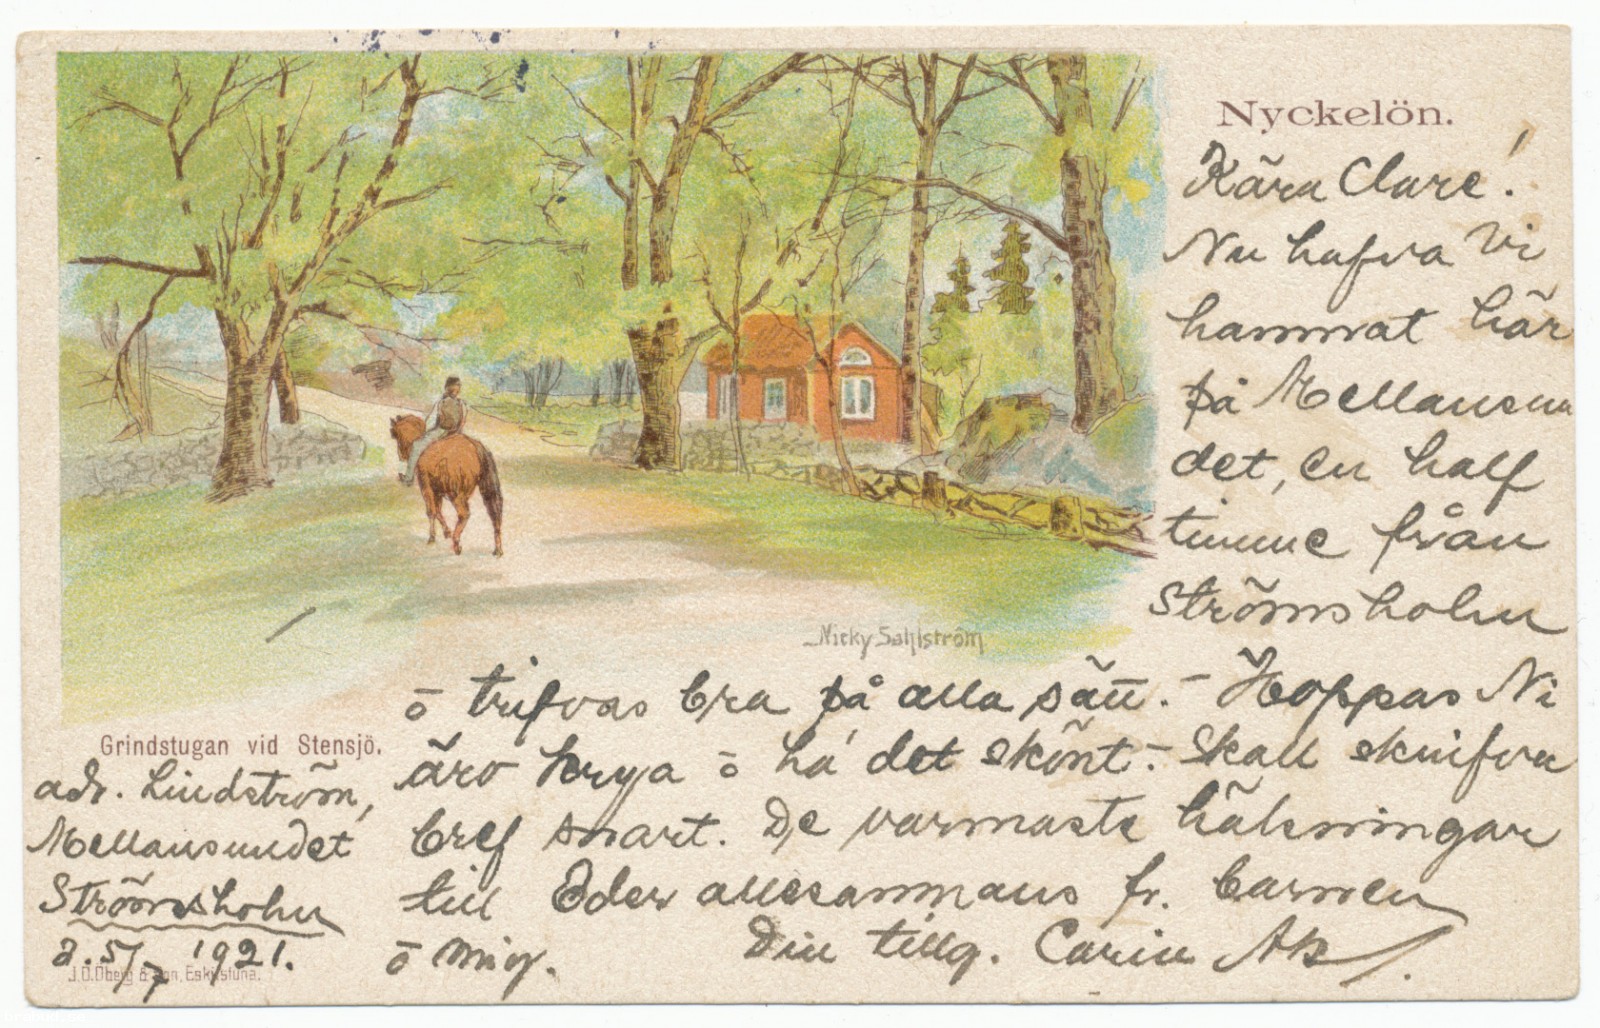 Nyckelön.
Kära Clare!
Nu hafva Vi
hammat här
på Mellansun
det, en half
timme från
Strömsholm
Nicky Sahlström
o trifvas bra på alla sätt. - Hoppas Ni
Grindstugan vid Stensjö.
äro krya o há det skönt. - Skall skrifva
bref snart. De varmaste hälsningar
till Eder allesammans fr. Carmen
o mig. Din tillg. Carin
adr. Lindström,
Mellansundet
Strömsholm
d. 5/7 1921.
J.O. Öberg & Son, Eskilstuna.